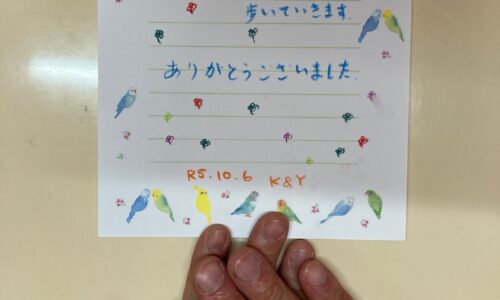 歩いていきます.
ありがとうございました.
R5.10.6 K&Y